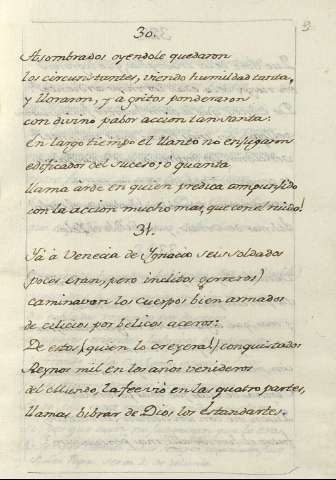 30.
Asombrados oyendole quedaron
los circunstantes, viendo humildad tanta,
y lloraron, y à gritos ponderaron
con divino pabor accion tan santa:
En largo tiempo el llanto no enjugaron
edificados del suceso; ó quanta
llama arde en quien predica compungido
con la accion mucho mas, que con el ruido!
31.
Ya à Venecia de Ignacio seis soldados
(pocos eran, pero inclitos gerreros)
caminavan los cuerpos bien armados
de cilicios por belicos aceros:
De estos (quien lo creyera!) conquistados
Reynos mil en los años venideros
del Mundo, la fee vió en las quatro partes,
llamas bibrar de Dios los Estandartes.